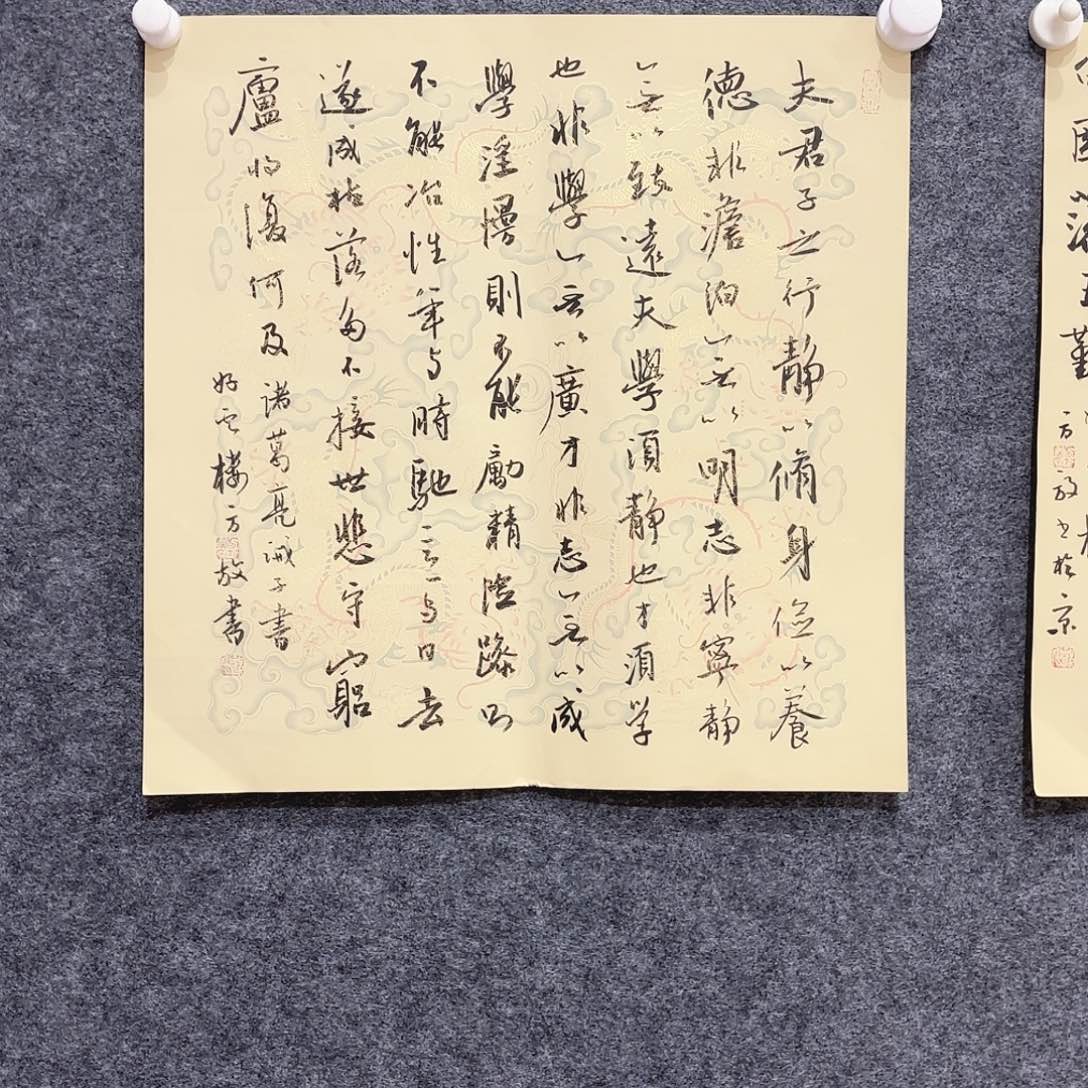 夫君子之行静以脩身俭以養
德非澹泊無以明志非寧静
無以致遠夫學須静也才須学
也非學無以廣才非志無以成
學淫慢則不能勵精險躁則
不能冶性年与時馳意与日去
遂成枯落多不接世悲守窮
廬將復何及 諸葛亮誡子書
好云樓方放書
方放书於京